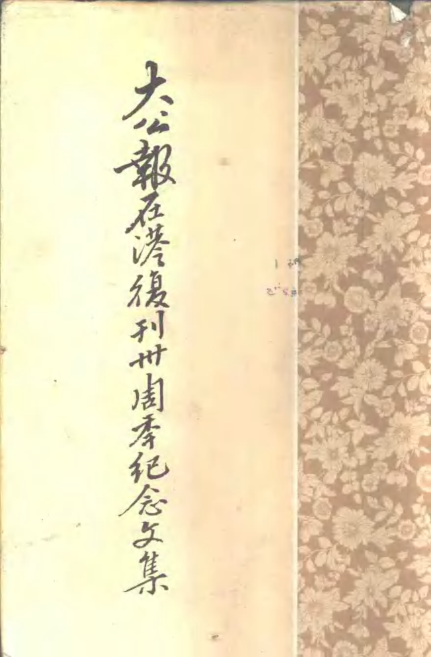 大公報在港復刊卅周年紀念文集